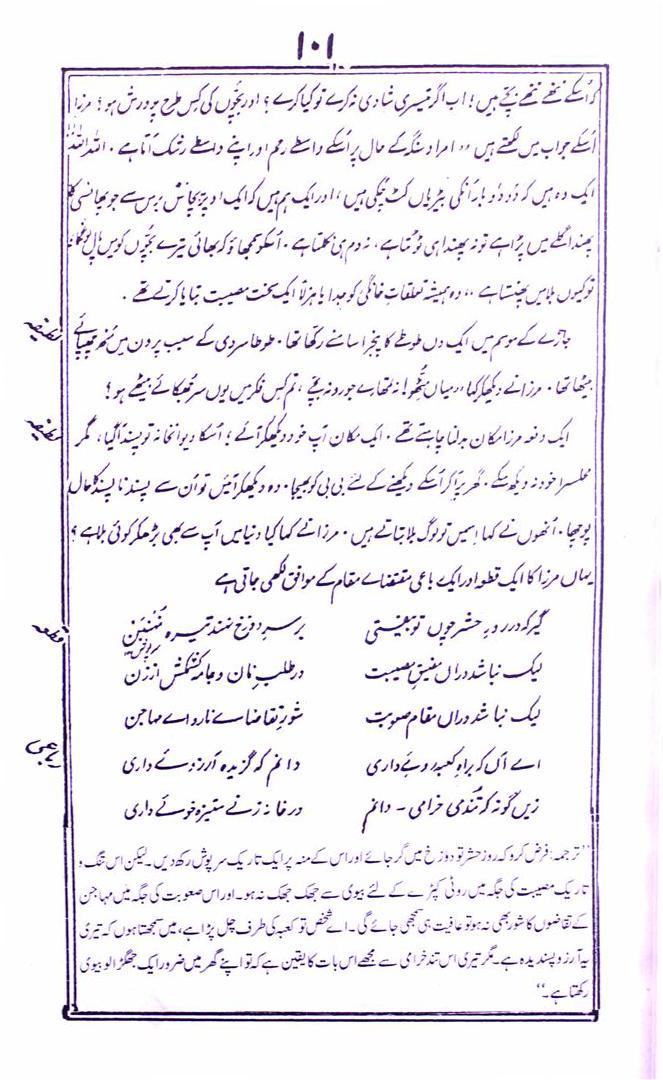 ۱۰۱
کہ اُسکے ننھے ننھے بچے ہیں؛ اب اگر تیسری شادی نہ کرے تو کیا کرے؟ اور بچوں کی کس طرح پرورش ہو؟ مرزا
اُسکے جواب میں لکھتے ہیں "امراؤ سنگھ کے حال پر اُسکے واسطے رحم اور اپنے واسطے رشک آتا ہے۔ اللہ اللہ
ایک وہ ہیں کہ دو دو بار اُنکی بیڑیاں کٹ چکی ہیں، اور ایک ہم ہیں کہ ایک اوپر پچاس برس سے جو پھانسی کا
پھندا گلے میں پڑا ہے تو نہ پھندا ہی ٹوٹتا ہے، نہ دم ہی نکلتا ہے۔ اُسکو سمجھاؤ کہ بھائی تیرے بچوں کو میں پال لونگا
تو کیوں بلا میں پھنستا ہے" وہ ہمیشہ تعلقات خانگی کو جداً یا ہزلاً ایک سخت مصیبت بتایا کرتے تھے۔
لطیفہ
جاڑے کے موسم میں ایک دن طوطے کا پنجرا سامنے رکھا تھا۔ طوطا سردی کے سبب پروں میں منھ چھپائے
بیٹھا تھا۔ مرزا نے دیکھکر کہا "میاں مٹھو! نہ تمھارے جورو نہ بچے، تم کس فکر میں یوں سر جھکائے بیٹھے ہو؟
لطیفہ
ایک دفعہ مرزا مکان بدلنا چاہتے تھے۔ ایک مکان آپ خود دیکھکر آئے؛ اُسکا دیوانخانہ تو پسند آگیا، مگر
محلسرا خود نہ دیکھ سکے۔ گھر پر آکر اُسکے دیکھنے کے لئے بی بی کو بھیجا۔ وہ دیکھکر آئیں تو اُن سے پسند ناپسند کا حال
پوچھا۔ اُنھوں نے کہا اسمیں تو لوگ بلا بتاتے ہیں۔ مرزا نے کہا کیا دنیا میں آپ سے بھی بڑھکر کوئی بلا ہے؟
یہاں مرزا کا ایک قطعہ اور ایک رباعی مقتضاے مقام کے موافق لکھی جاتی ہے
قطعہ
گیرکہ در روز حشر چوں تو بیفتی برسر دوزخ نہند تیرہ نہنبن
سرپوش
لیک نباشد دراں مضیقِ مصیبت در طلبِ نان و جامہ کشمکش از زن
لیک نباشد دراں مقام صعوبت شورِ تقاضاے نارواے مہاجن
رباعی
اے آں کہ براہِ کعبہ روئے داری دانم کہ گزیدہ آرزوئے داری
زیں گونہ کہ تندمی خرامی ۔ دانم در خانہ زنے ستیزہ خوئے داری
"ترجمہ: فرض کرو کہ روز حشر تو دوزخ میں گر جائے اور اس کے منہ پر ایک تاریک سرپوش رکھ دیں۔ لیکن اس تنگ و
تاریک مصیبت کی جگہ میں روٹی کپڑے کے لئے بیوی سے جھک جھک نہ ہو۔ اور اس صعوبت کی جگہ میں مہاجن
کے تقاضوں کا شور بھی نہ ہو تو عافیت ہی سمجھی جائے گی۔ اے شخص تو کعبہ کی طرف چل پڑا ہے، میں سمجھتا ہوں کہ تیری
یہ آرزو پسندیدہ ہے۔ مگر تیری اس تند خرامی سے مجھے اس بات کا یقین ہے کہ تو اپنے گھر میں ضرور ایک جھگڑالو بیوی
رکھتا ہے۔"